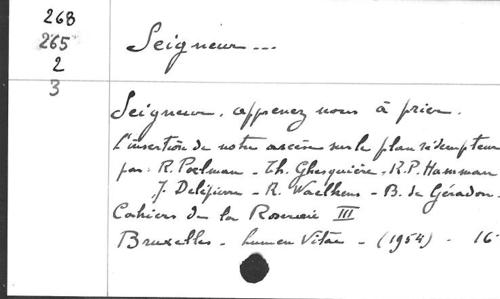 268
265
2
3
Seigneur...
Seigneur, apprenez nous à prier.
L'insertion de notre ascèse sur le plan rédempteur
par: R. Poelman - Th. Ghesquière, R.P. Hamman
J. Delépierre - R. Waelkens - B. de Géradon -
Cahiers de la Roseraie III
Bruxelles - Lumen Vitae - (1954) - 16